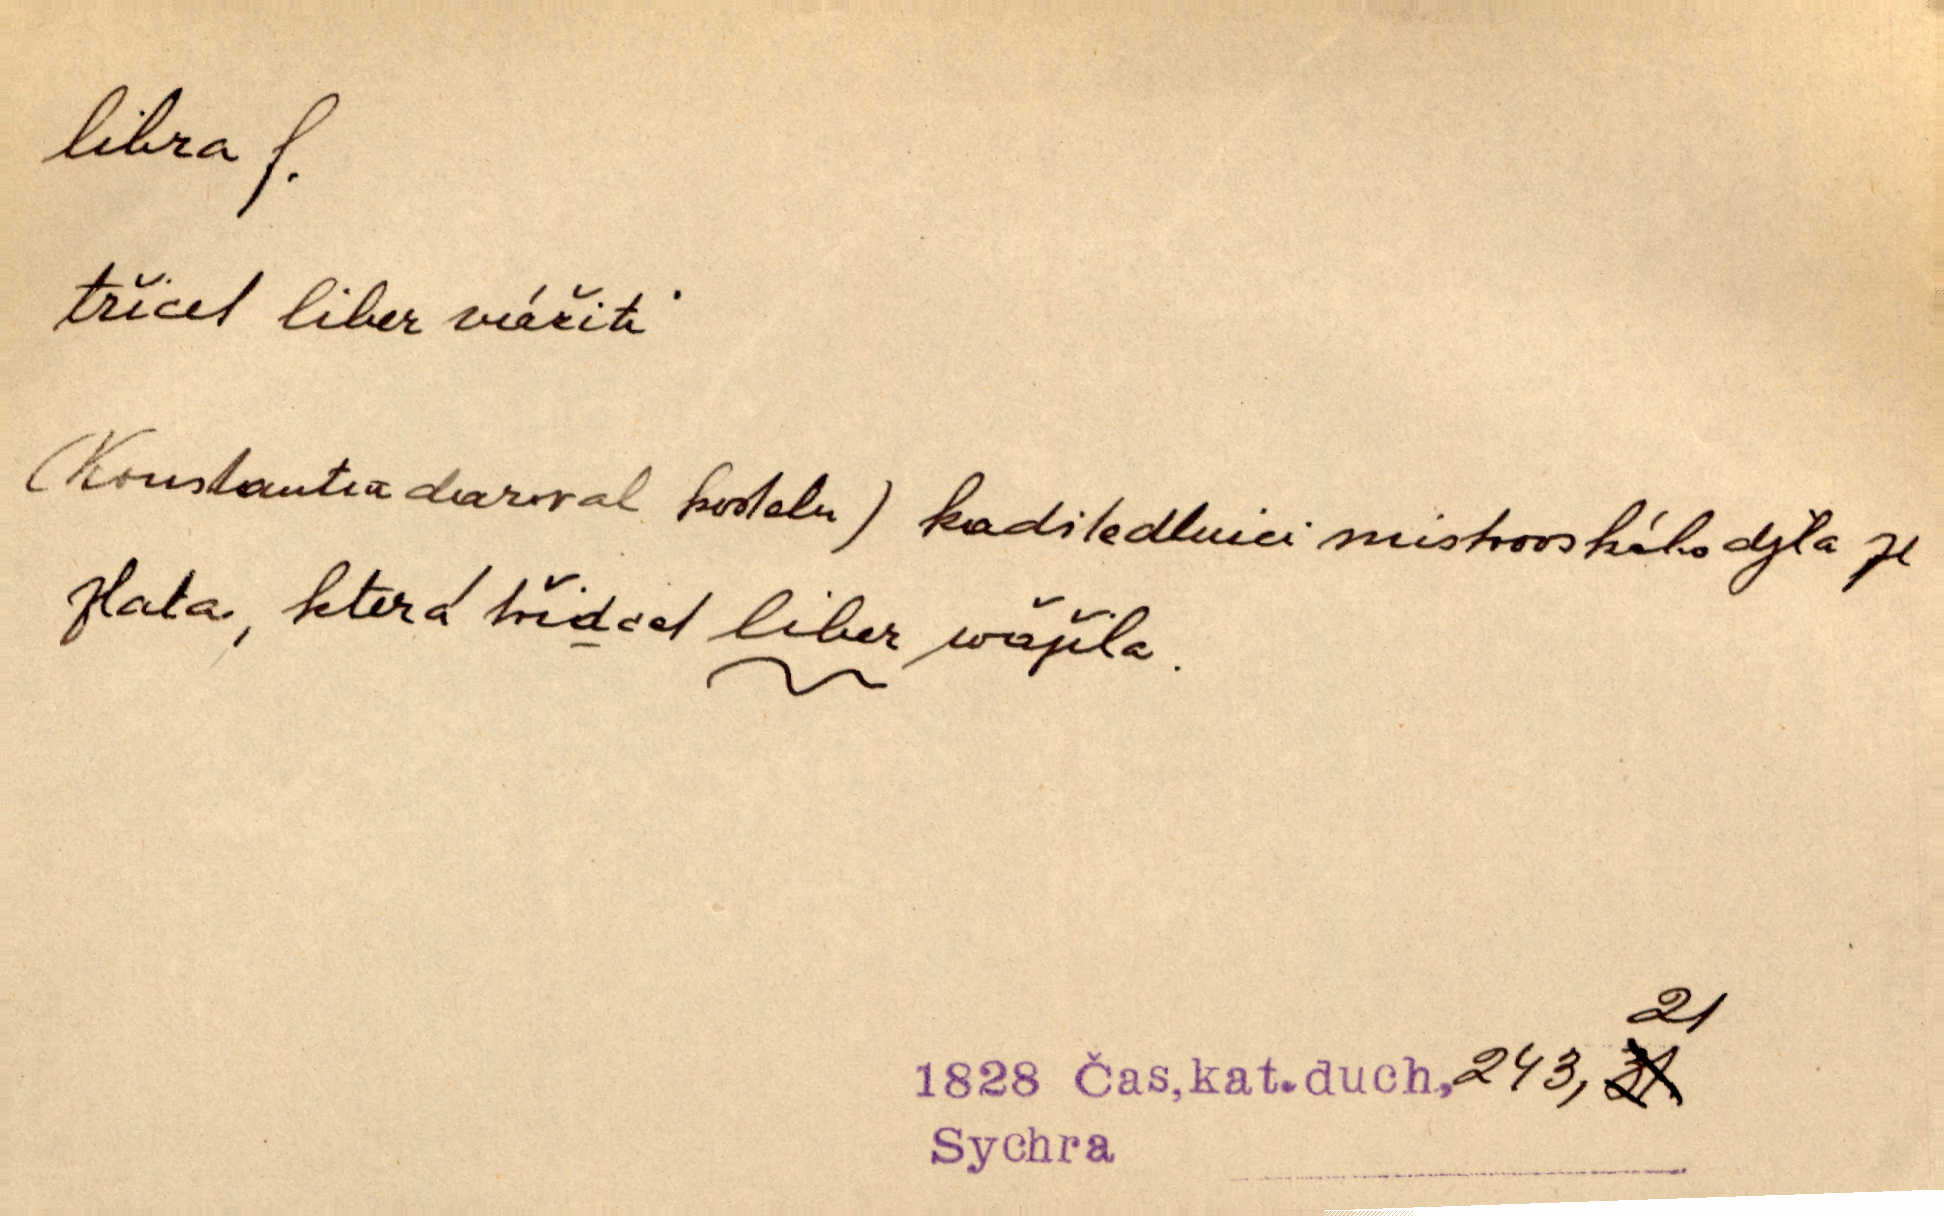 libra f.
třicet liber vážiti
(Konstantin daroval kostelu) kadidlnici mistrovského djla ze
zlata, která třidcet liber wážila.
21
1828 Čas,kat.duch,243, 31
Sychra